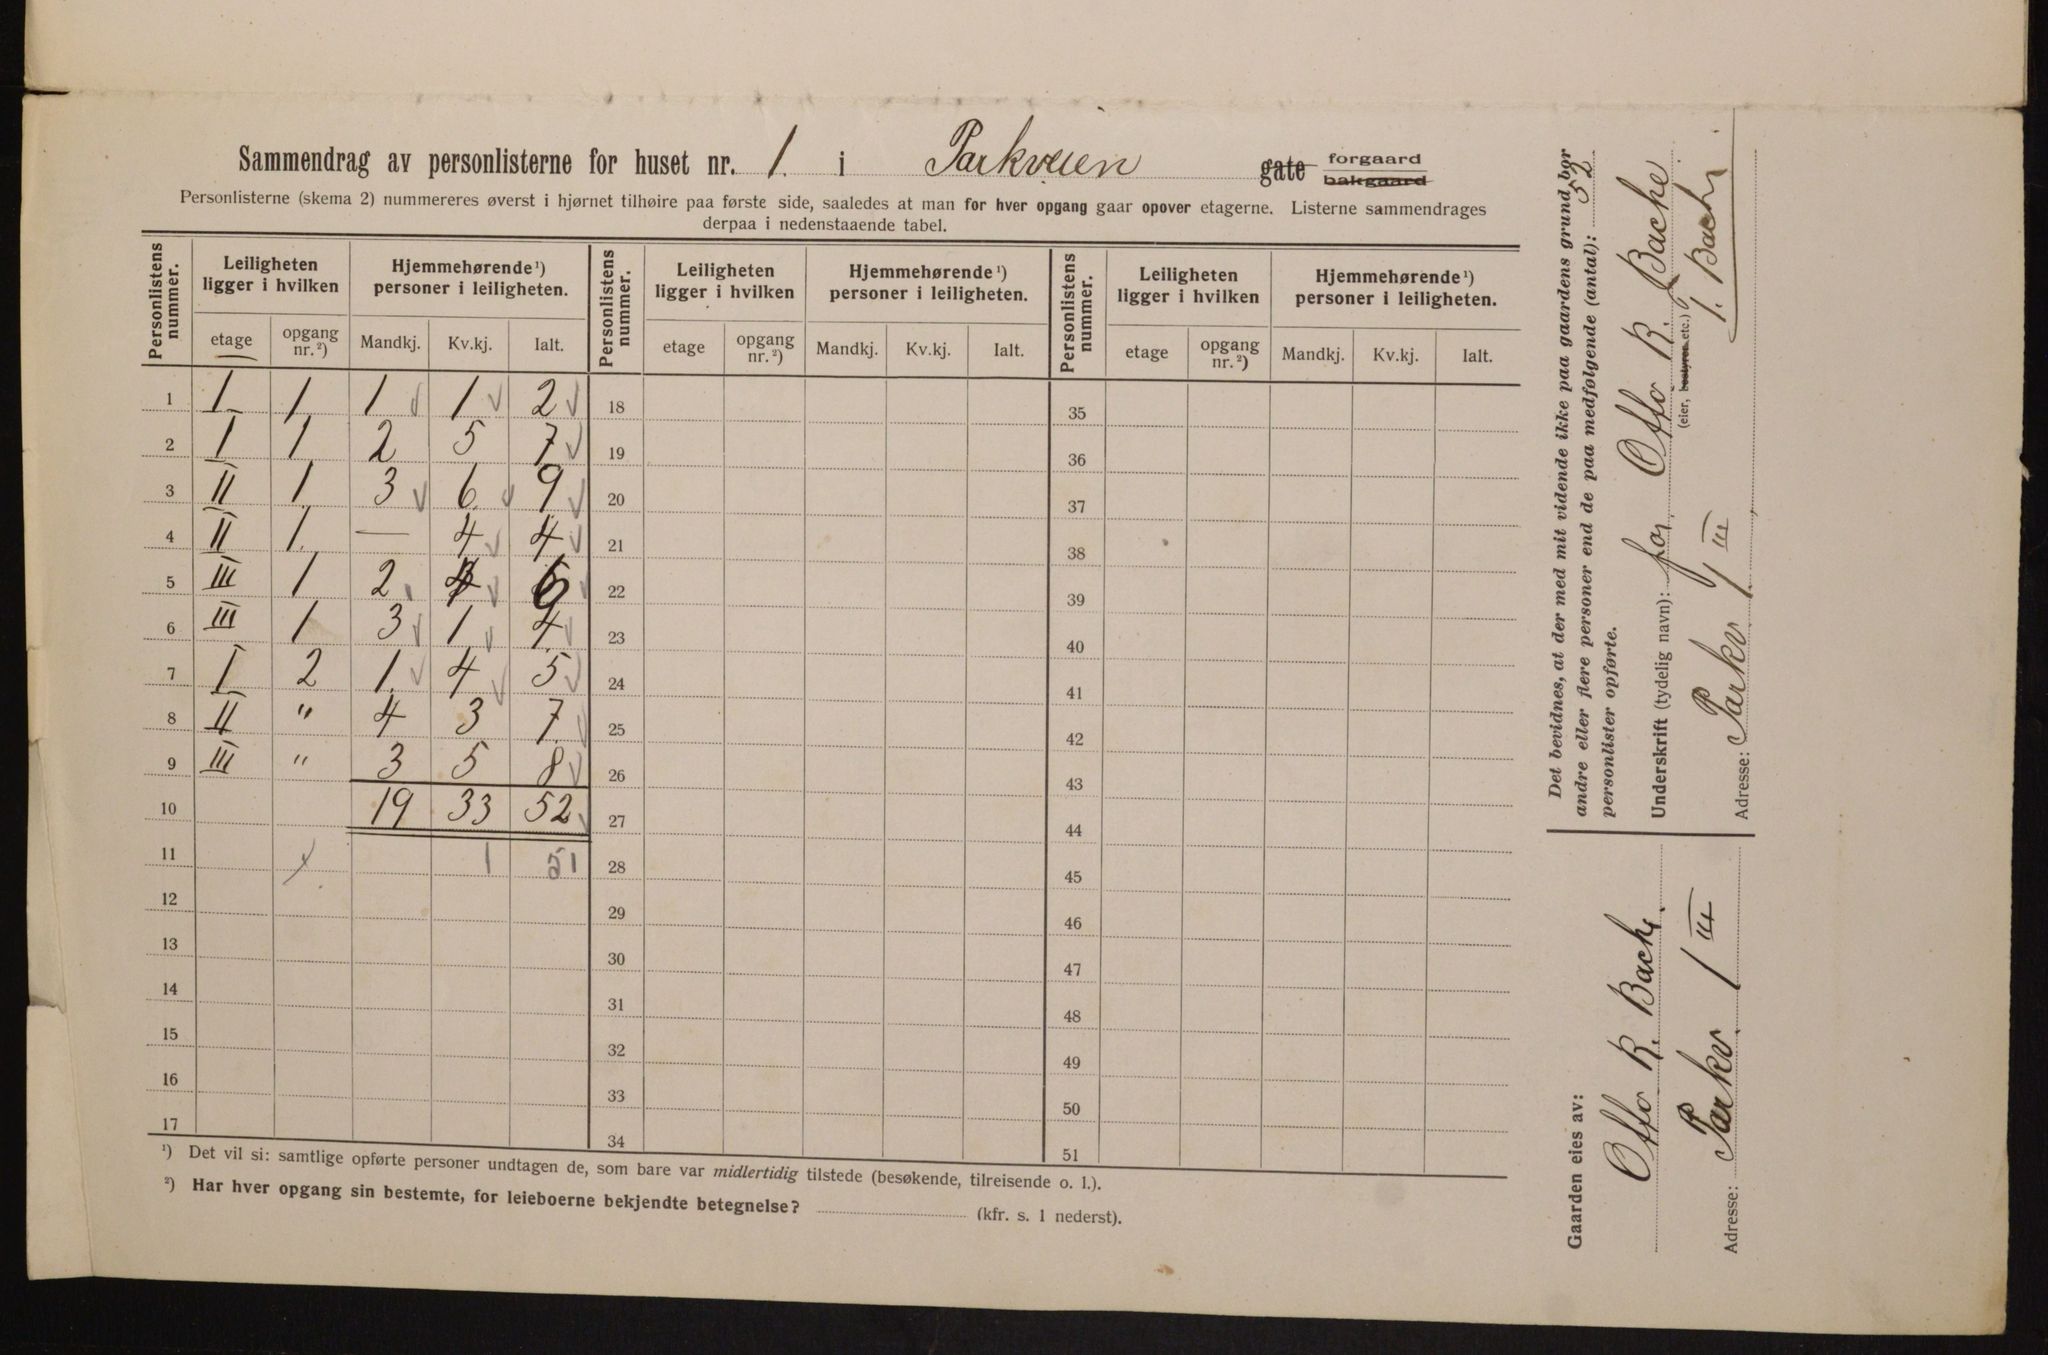 Sammendrag av personlisterne for huset nr. 1. i Parkveien gate forgaard bakgaard
Personlisterne (skema 2) nummereres øverst i hjørnet tilhøire paa første side, saaledes at man for hver opgang gaar opover etagerne. Listerne sammendrages
derpaa i nedenstaaende tabel.
Personlistens nummer. Leiligheten ligger i hvilken Hjemmehørende¹) personer i leiligheten. Personlistens nummer. Leiligheten ligger i hvilken Hjemmehørende¹) personer i leiligheten. Personlistens nummer. Leiligheten ligger i hvilken Hjemmehørende¹) personer i leiligheten.
etage opgang nr.²) Mandkj. Kv.kj. Ialt. etage opgang nr.²) Mandkj. Kv.kj. Ialt. etage opgang nr.²) Mandkj. Kv.kj. Ialt.
1 I 1 1 1 2 18 35
2 I 1 2 5 7 19 36
3 II 1 3 6 9 20 37
4 II 1. — 4 4 21 38
5 III 1 2 4 6 22 39
6 III 1 3 1 4 23 40
7 I 2 1 4 5 24 41
8 II " 4 3 7 25 42
9 III " 3 5 8 26 43
10 19 33 52 27 44
11 1 51 28 45
12 29 46
13 30 47
14 31 48
15 32 49
16 33 50
17 34 51
¹) Det vil si: samtlige opførte personer undtagen de, som bare var midlertidig tilstede (besøkende, tilreisende o. l.).
²) Har hver opgang sin bestemte, for leieboerne bekjendte betegnelse? (kfr. s. 1 nederst).
Det bevidnes, at der med mit vidende ikke paa gaardens grund bor
andre eller flere personer end de paa medfølgende (antal): 52
personlister opførte.
Underskrift (tydelig navn): for Offo R. Bache
(eier, bestyrer etc.)
Bache
Adresse: Parkv 1 III
Gaarden eies av:
Offo R. Bache
Adresse: Parkv. 1 III